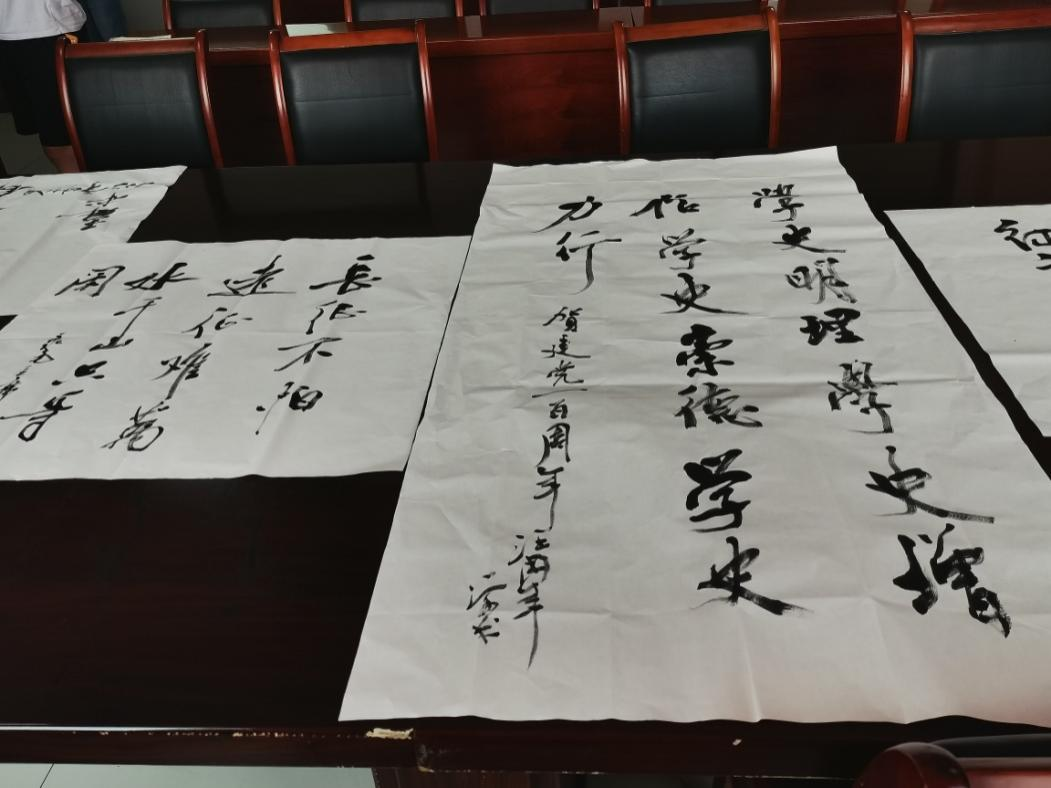 學史明理學史增
信学史崇德学史
力行
贺建党一百周年
長征不怕
远征难萬
水千山只等
闲